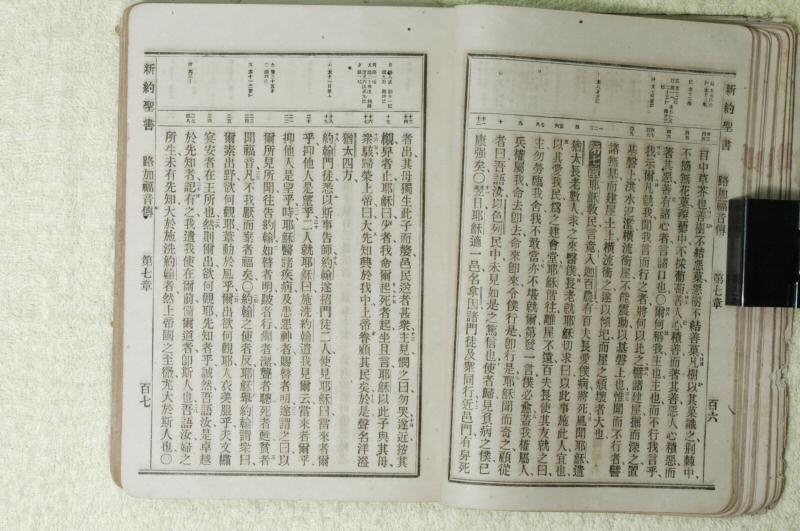 新約聖書 路加福音傳 第七章 百六
目中草芥也○善樹不結惡菓惡樹不結善菓凡樹以其菓識之荊棘中
不摘無花菓蒺藜中不採葡萄善人心積善而著其善惡人心積惡而
著其惡蓋有諸心者言諸口也○爾何稱我主也主也而不行我言乎
我示爾凡就我聞我言而行之者將何以此之譬諸建屋掘而深之置
基磐上洪水氾濫橫流衝屋不能震動以基磐上也惟聞而不行者譬
諸無基而建屋土上橫流衝之遂以傾圮而屋之頹壞者大也
第七章 耶穌敎民言竟入迦百農有百夫長愛僕病將死風聞耶穌遣
猶太長老數人求之來醫僕長老就耶穌切求曰以此事施此人宜也
以其愛我民爲之建會堂耶穌偕往離屋不遠百夫長使其友就之曰
主勿勞臨我舍我不敢當亦不堪就爾第發一言僕必愈蓋我權屬人
兵權屬我命去卽去命來卽來令僕行是卽行是耶穌聞而奇之顧從
者曰吾語汝以色列民中未見如是之篤信也使者歸見負病之僕已
康強矣○翌日耶穌適一邑名拿因諸門徒及衆同行近邑門有舁死
者出其母獨生此子而嫠邑民送者甚衆主見憫之曰勿哭遂近按其
櫬舁者止耶穌曰少者我命爾起死者起坐且言耶穌以此子與其母
衆駭歸榮上帝曰大先知興於我中上帝眷顧其民矣於是聲名洋溢
猶太四方
約翰門徒悉以斯事告師約翰遂招門徒二人使見耶穌曰當來者爾
乎抑他人是望乎二人就耶穌曰施洗約翰遣我見爾云當來者爾乎
抑他人是望乎時耶穌醫諸疾病及患惡神者賜瞽者明遂謂之曰以
爾所見所聞往告約翰如瞽者明跛者行癩者潔聾者聰死者甦貧者
聞福音凡不我厭而棄者福矣○約翰之使者反耶穌擧約翰謂衆曰
爾素出野欲何觀耶葦動於風乎爾出欲何觀耶人衣美服乎夫文繡
宴安者在王所也然則爾出欲何觀耶先知者乎誠然吾語汝是卓越
於先知者記有之我遣我使在爾前備爾道者卽斯人也吾語汝婦之
所生未有先知大於施洗約翰者然上帝國之至微尤大於斯人也○
新約聖書 路加福音傳 第七章 百七